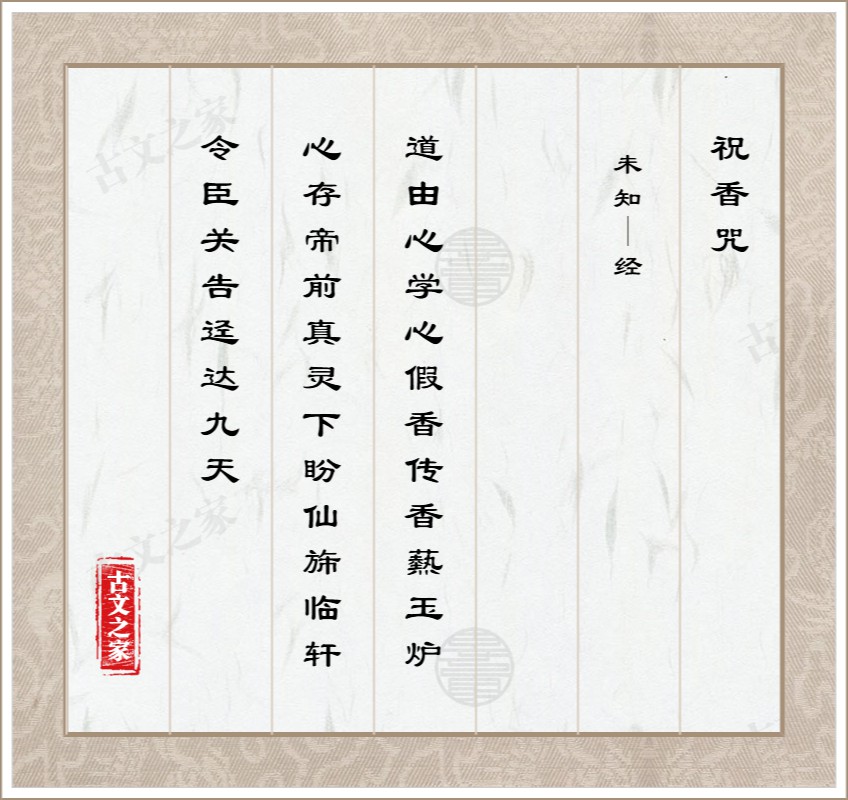 祝香咒
未知—经
道由心学心假香传香爇玉炉
心存帝前真灵下盼仙旆临轩
令臣关告迳达九天
古文之家
古文之家
古文之家